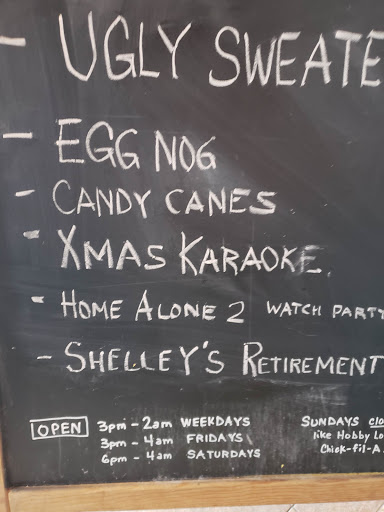 - UGLY SWEATE
- EGG NOG
- CANDY CANES
- XMAS KARAOKE
- HOME ALONE 2 WATCH PARTY
- SHELLEY'S RETIREMENT
OPEN 3pm - 2am WEEKDAYS
3pm - 4am FRIDAYS
6pm - 4am SATURDAYS
SUNDAYS clo
like Hobby Lo
Chick-fil-A